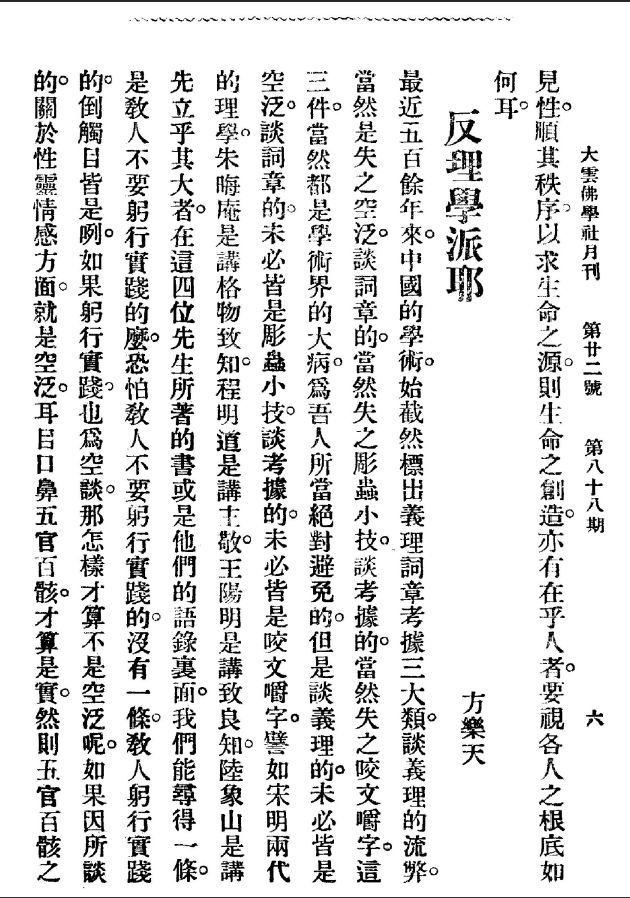 大雲佛學社月刊　第廿二號　第八十八期　六
見性。順其秩序。以求生命之源。則生命之創造。亦有在乎人者。要視各人之根底如
何耳。
反理學派耶
方樂天
最近五百餘年來。中國的學術。始截然標出義理詞章考據三大類。談義理的流弊。
當然是失之空泛。談詞章的。當然失之彫蟲小技。談考據的。當然失之咬文嚼字。這
三件。當然都是學術界的大病。爲吾人所當絕對避免的。但是談義理的。未必皆是
空泛。談詞章的。未必皆是彫蟲小技。談考據的。未必皆是咬文嚼字。譬如宋明兩代
的理學。朱晦庵是講格物致知。程明道是講主敬。王陽明是講致良知。陸象山是講
先立乎其大者。在這四位先生所著的書或是他們的語錄裏面。我們能尋得一條。
是敎人不要躬行實踐的麼。恐怕敎人不要躬行實踐的。沒有一條。敎人躬行實踐
的。倒觸目皆是咧。如果躬行實踐。也爲空談。那怎樣才算不是空泛呢。如果因所談
的。關於性靈情感方面。就是空泛。耳目口鼻五官百骸。才算是實。然則五官百骸之